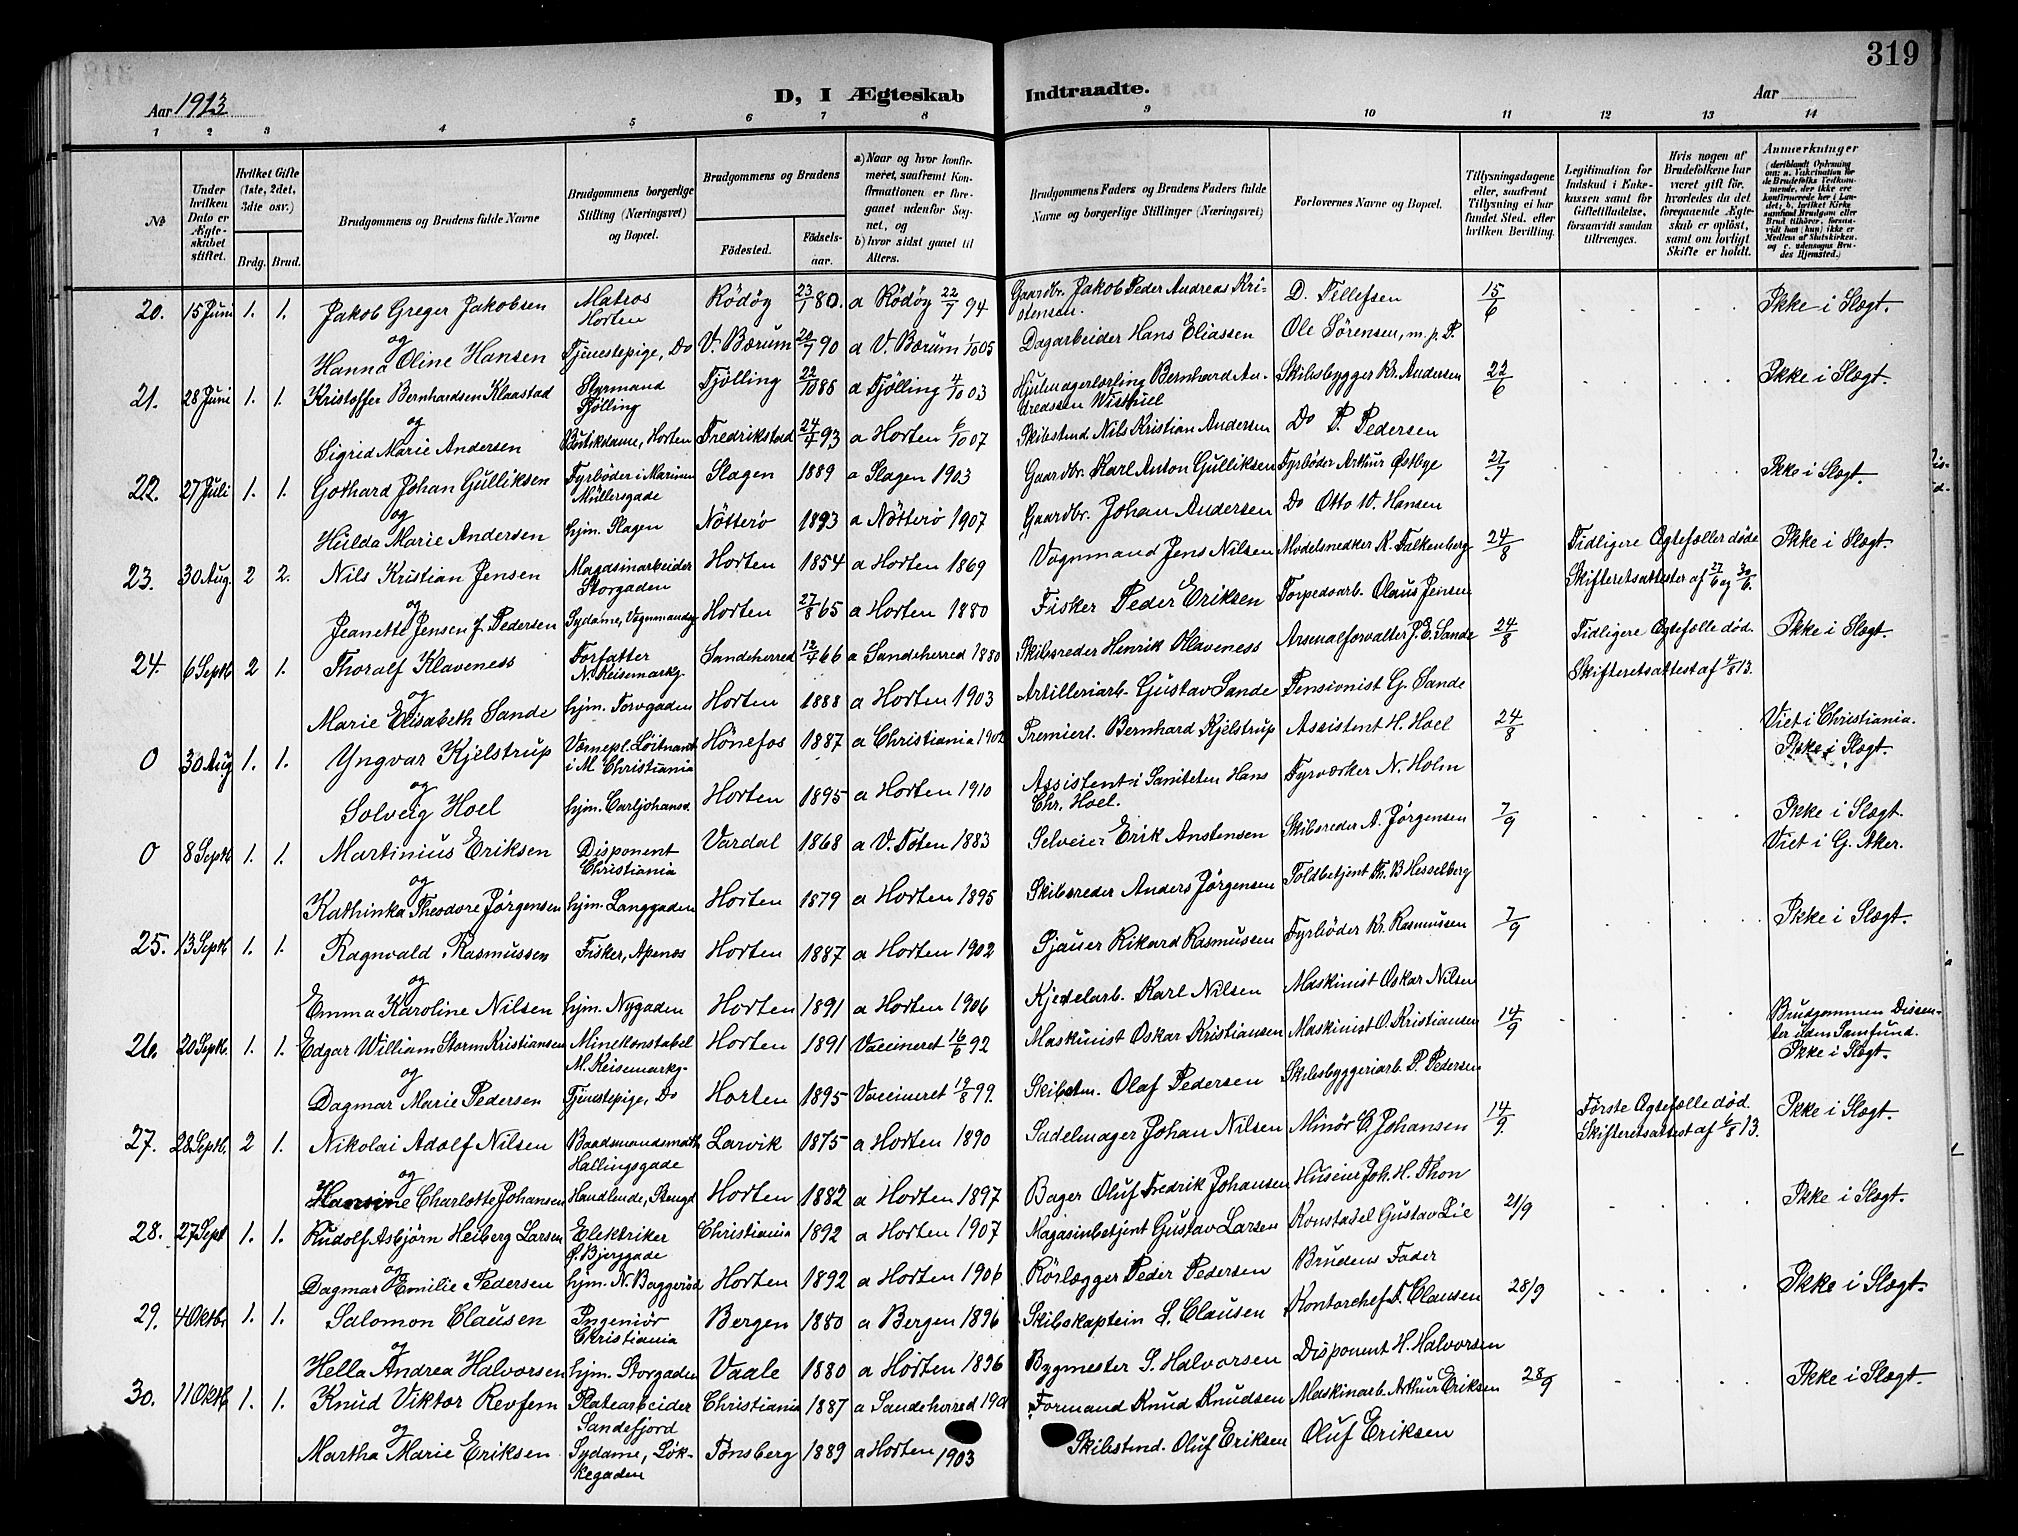 319
Aar 1913
D, I Ægteskab Indtraadte.
Aar
1 2 3 4 5 6 7 8 9 10 11 12 13 14
№
Under hvilken Dato er Ægteskabet stiftet.
Hvilket Gifte (1ste, 2det, 3die osv.)
Brdg. Brud.
Brudgommens og Brudens fulde Navne
Brudgommens borgerlige Stilling (Næringsvei) og Bopæl.
Brudgommens og Brudens
Födested. Födselsaar.
a) Naar og hvor konfirmeret, saafremt Konfirmationen er foregaaet udenfor Sognet, og
b) hvor sidst gaaet til Alters.
Brudgommens Faders og Brudens Faders fulde Navne og borgerlige Stillinger (Næringsvei)
Forlovernes Navne og Bopæl.
Tillysningsdagene eller, saafremt Tillysning ei har fundet Sted, efter hvilken Bevilling.
Legitimation for Indskud i Enkekassen samt for Giftetilladelse, forsaavidt saadan tiltrænges.
Hvis nogen af Brudefolkene har været gift för, hvorledes da det foregaaende Ægteskab er oplöst, samt om lovligt Skifte er holdt.
Anmerkninger
20. 15 Juni 1. 1. Jakob Greger Jakobsen Matros Horten Rödöy 23/1 80. a Rödöy 22/7 94 Gaardbr. Jakob Peder Andreas Kristensen. D. Tillefsen 15/6 Ikke i Slægt.
og
Hanna Oline Hansen Tjenestepige, Do V. Bærum 20/7 90 a V. Bærum 1/10 05 Dagarbeider Hans Eliassen Ole Sörensen, m. p. P.
21. 28 Juni 1. 1. Kristoffer Bernhardsen Klaastad Styrmand Tjölling Tjölling 22/10 88 a Tjölling 4/10 03 Hjulmagerlærling Bernhard Andreassen Skibsbygger Kr. Andersen 22/6 Ikke i Slægt.
og
Sigrid Marie Andersen Butikdame, Horten Fredrikstad 24/4 93 a Horten 6/10 07 Skibstmd. Nils Kristian Andersen Do P. Pedersen
22. 27 Juli 1. 1. Gothard Johan Gulliksen Fyrböder i Marinen Müllersgade Slagen 1889 a Slagen 1903 Gaardbr. Karl Anton Gulliksen Fyrböder Arthur Østbye 27/7 Ikke i Slægt.
og
Hulda Marie Andersen hjm. Slagen Nötterö 1893 a Nötterö 1907 Gaardbr. Johan Andersen Do Otto W. Hansen
23. 30 Aug. 2 2. Nils Kristian Jensen Magasinarbeider Storgaden Horten 1854 a Horten 1869 Vognmand Jens Nilsen Modelsnedker K. Falkenberg 24/8 Tidligere Ægtefæller döde Skifteretsattester af 27/6 og 30/6. Ikke i Slægt.
og
Jeanette Jensen f. Pedersen Sydame, Vognmandsg. Horten 27/8 65 a Horten 1880 Fisker Peder Eriksen Torpedoarb. Olaus Jensen
24. 6 Septb 2 1. Thoralf Klaveness Forfatter N. Keisemarkg. Sandeherred 12/4 66 a Sandeherred 1880 Skibsreder Henrik Klaveness Arsenalforvalter J. E. Sande 24/8 Tidligere Ægtefælle död. Skifteretsattest af 4/8 13. Ikke i Slægt.
og
Marie Elisabeth Sande hjm. Torvgaden Horten 1888 a Horten 1903 Artilleriarb. Gustav Sande Pensionist G. Sande
0 30 Aug 1. 1. Yngvar Kjelstrup Værnepl. Löitnant i M. Christiania Hönefos 1887 a Christiania 1902 Premierl. Bernhard Kjelstrup Assistent H. Hoel 24/8 Viet i Christiania. Ikke i Slægt.
og
Solveig Hoel hjm. Carljohansv. Horten 1895 a Horten 1910 Assistent i Saniteten Hans Chr. Hoel. Fyrværker N. Holm
0 8 Septb 1. 1. Martinius Eriksen Disponent Christiania Vardal 1868 a V. Toten 1883 Selveier Erik Anstensen Skibsreder A. Jørgensen 7/9 Ikke i Slægt. Viet i G. Aker.
og
Kathinka Theodore Jørgensen hjm. Langgaden Horten 1879 a Horten 1895 Skibsreder Anders Jørgensen Toldbetjent Th. B Hesselberg
25. 13 Septb. 1. 1. Ragnvald Rasmussen Fisker, Apenæs Horten 1887 a Horten 1902 Sjauer Rikard Rasmussen Fyrbøder Kr. Rasmussen 7/9 Ikke i Slægt.
og
Emma Karoline Nilsen hjm. Nygaden Horten 1891 a Horten 1906 Kjedelarb. Karl Nilsen Maskinist Oskar Nilsen
26. 20 Septb. 1. 1. Edgar William Storm Kristiansen Minekonstabel M. Keisemarkg. Horten 1891 Vaccineret 16/6 92 Maskinist Oskar Kristiansen Maskinist O. Kristiansen 14/9 Brudgommen Dissenter uden Samfund. Ikke i Slægt.
og
Dagmar Marie Pedersen Tjenestepige, Do Horten 1895 Vaccineret 19/8 99. Skibstm. Olaf Pedersen Skibsbyggeriarb. P. Pedersen
27. 28 Septb. 2 1. Nikolai Adolf Nilsen Baadsmandsmath Hallingsgade Larvik 1875 a Horten 1890 Sadelmager Johan Nilsen Minör C. Johansen 14/9. Første Ægtefælle död. Skifteretsattest af 6/8 13. Ikke i Slægt.
og
Hansine Charlotte Johansen Handlende, Skougd Horten 1882 a Horten 1897 Bager Oluf Fredrik Johansen Huseier Joh. H. Thon
28. 27 Sept 1. 1. Rudolf Asbjörn Heiberg Larsen Elektriker Ø. Bjerggade Christiania 1892 a Horten 1907 Magasinbetjent Gustav Larsen Konstabel Gustav Lie 21/9 Ikke i Slægt.
og
Dagmar Emilie Pedersen hjm. N. Baggerød Horten 1892 a Horten 1906 Rörlægger Peder Pedersen Brudens Fader
29. 4 Oktbr 1. 1. Salomon Clausen Ingeniör Christiania Bergen 1880 a Bergen 1896 Skibskaptein S. Clausen Kontorchef T. Clausen 28/9 Ikke i Slægt.
og
Hella Andrea Halvorsen hjm. Storgaden Vaale 1880 a Horten 1896 Bygmester S. Halvorsen Disponent H. Halvorsen
30. 11 Oktb 1. 1. Knud Viktor Revfem Platearbeider Sandefjord Christiania 1887 a Sandeherred Formand Knud Knudsen Maskinarb. Arthur Eriksen 28/9 Ikke i Slægt.
og
Martha Marie Eriksen Sydame, Løkkegaden Tønsberg 1889 a Horten 1903 Skibstmd. Oluf Eriksen Oluf Eriksen